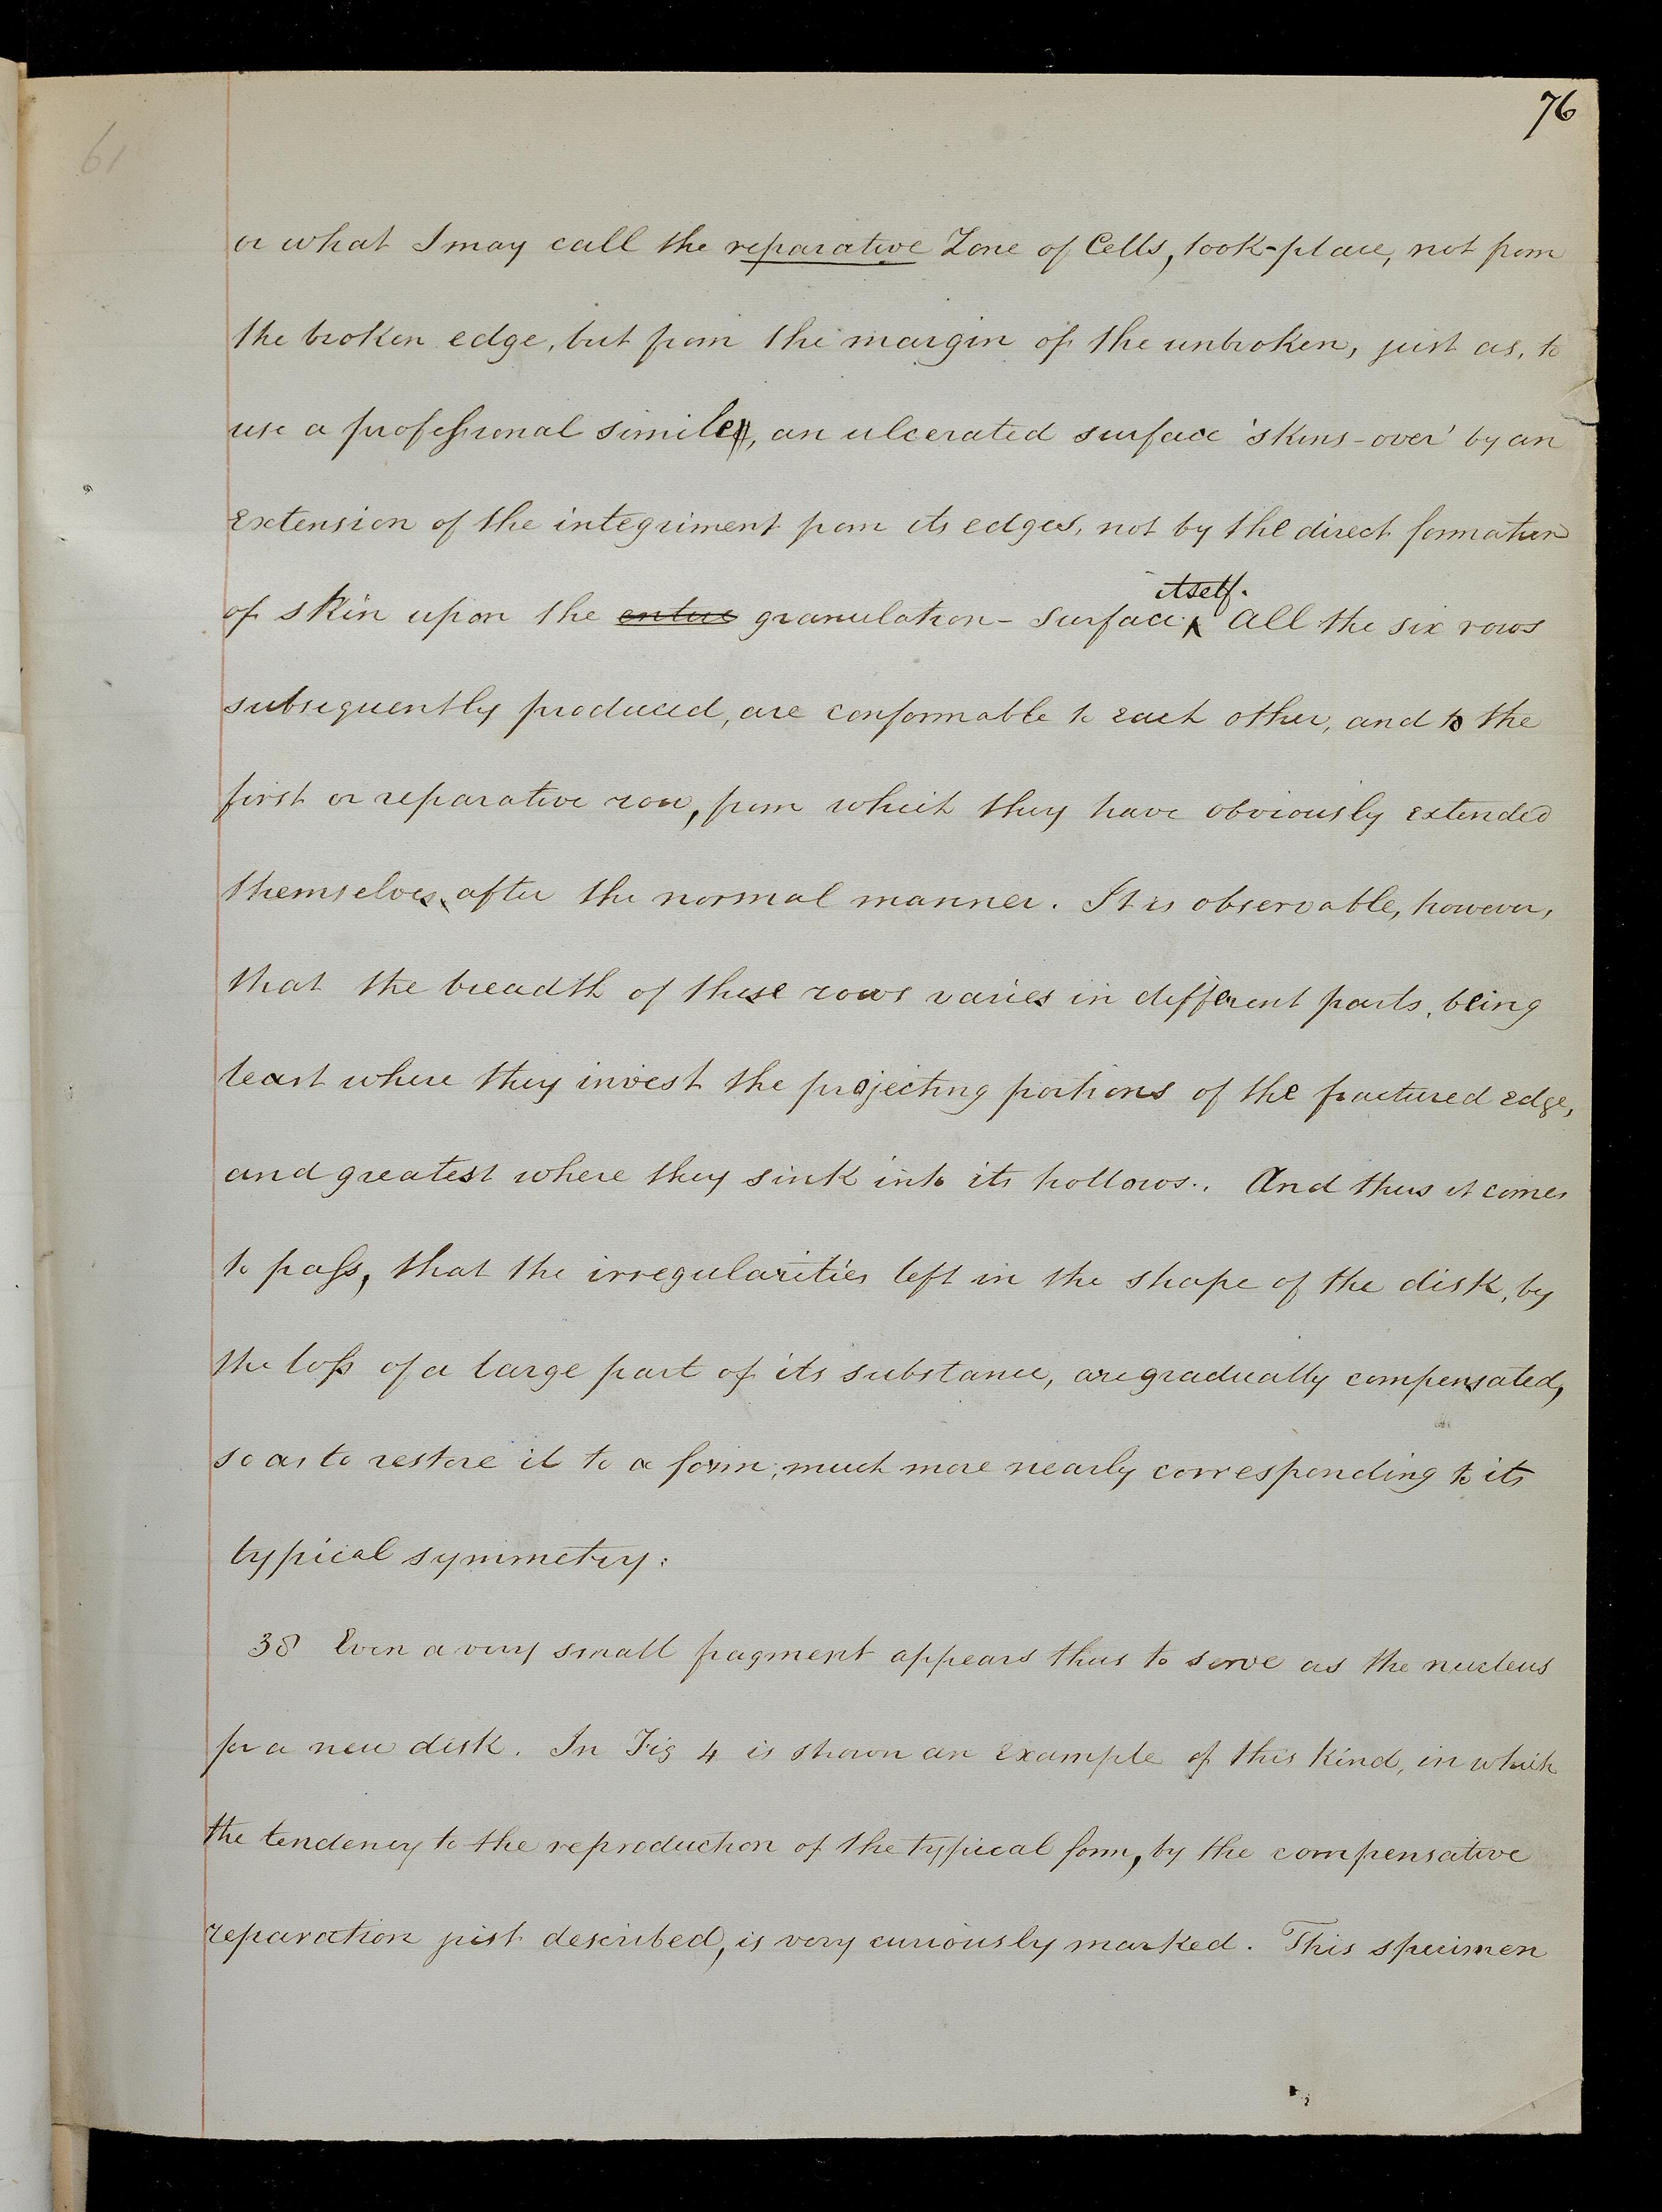 76
61
or what I may call the reparative Zone of Cells, took-place, not from
the broken edge, but from the margin of the unbroken, just as, to
use a professional simile, an ulcerated surface 'skins-over' by an
extension of the integument from its edges, not by the direct formation
of skin upon the entire granulation-surface itself. All the six rows
subsequently produced, are conformable to each other, and to the
first or reparative row, from which they have obviously extended
themselves, after the normal manner. It is observable, however,
that the breadth of these rows varies in different parts, being
least where they invest the projecting portions of the fractured edge,
and greatest where they sink into its hollows. And thus it comes
to pass, that the irregularities left in the shape of the disk, by
the loss of a large part of its substance, are gradually compensated,
so as to restore it to a form, much more nearly corresponding to its
typical symmetry:
38 Even a very small fragment appears thus to serve as the nucleus
for a new disk. In Fig 4 is shown an example of this kind, in which
the tendency to the reproduction of the typical form, by the compensative
reparation just described, is very curiously marked. This specimen